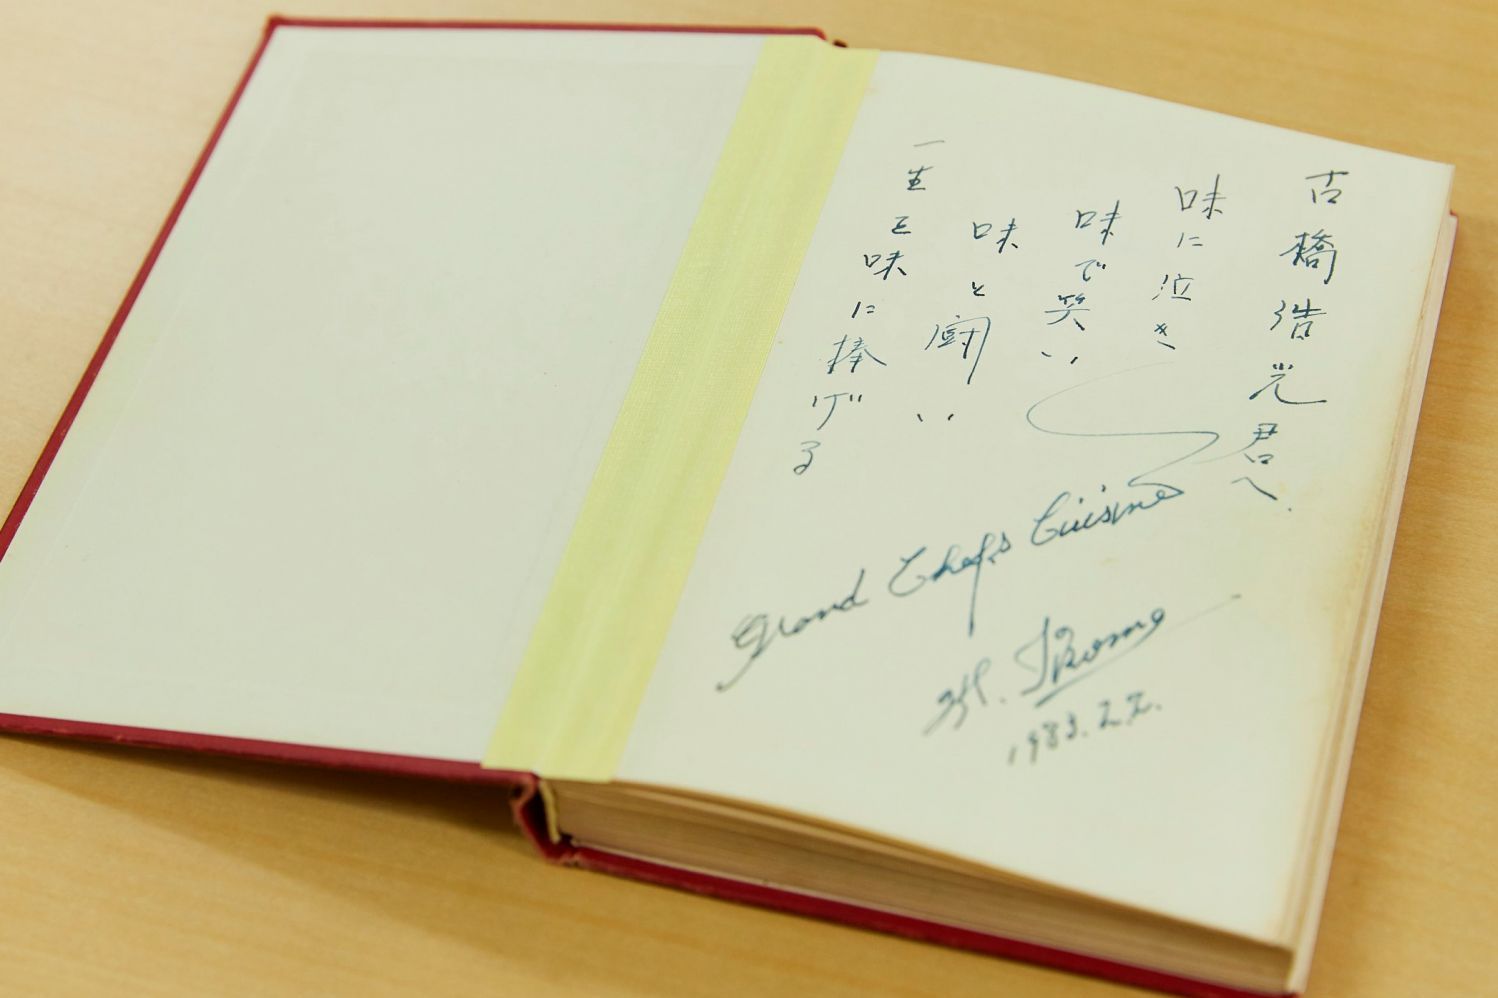 古橋浩光君へ.
味に泣き
味で笑い
味と闘い
一生を味に捧げる
Grand Chefs Cuisine
H. Ikome
1983. 2.2.